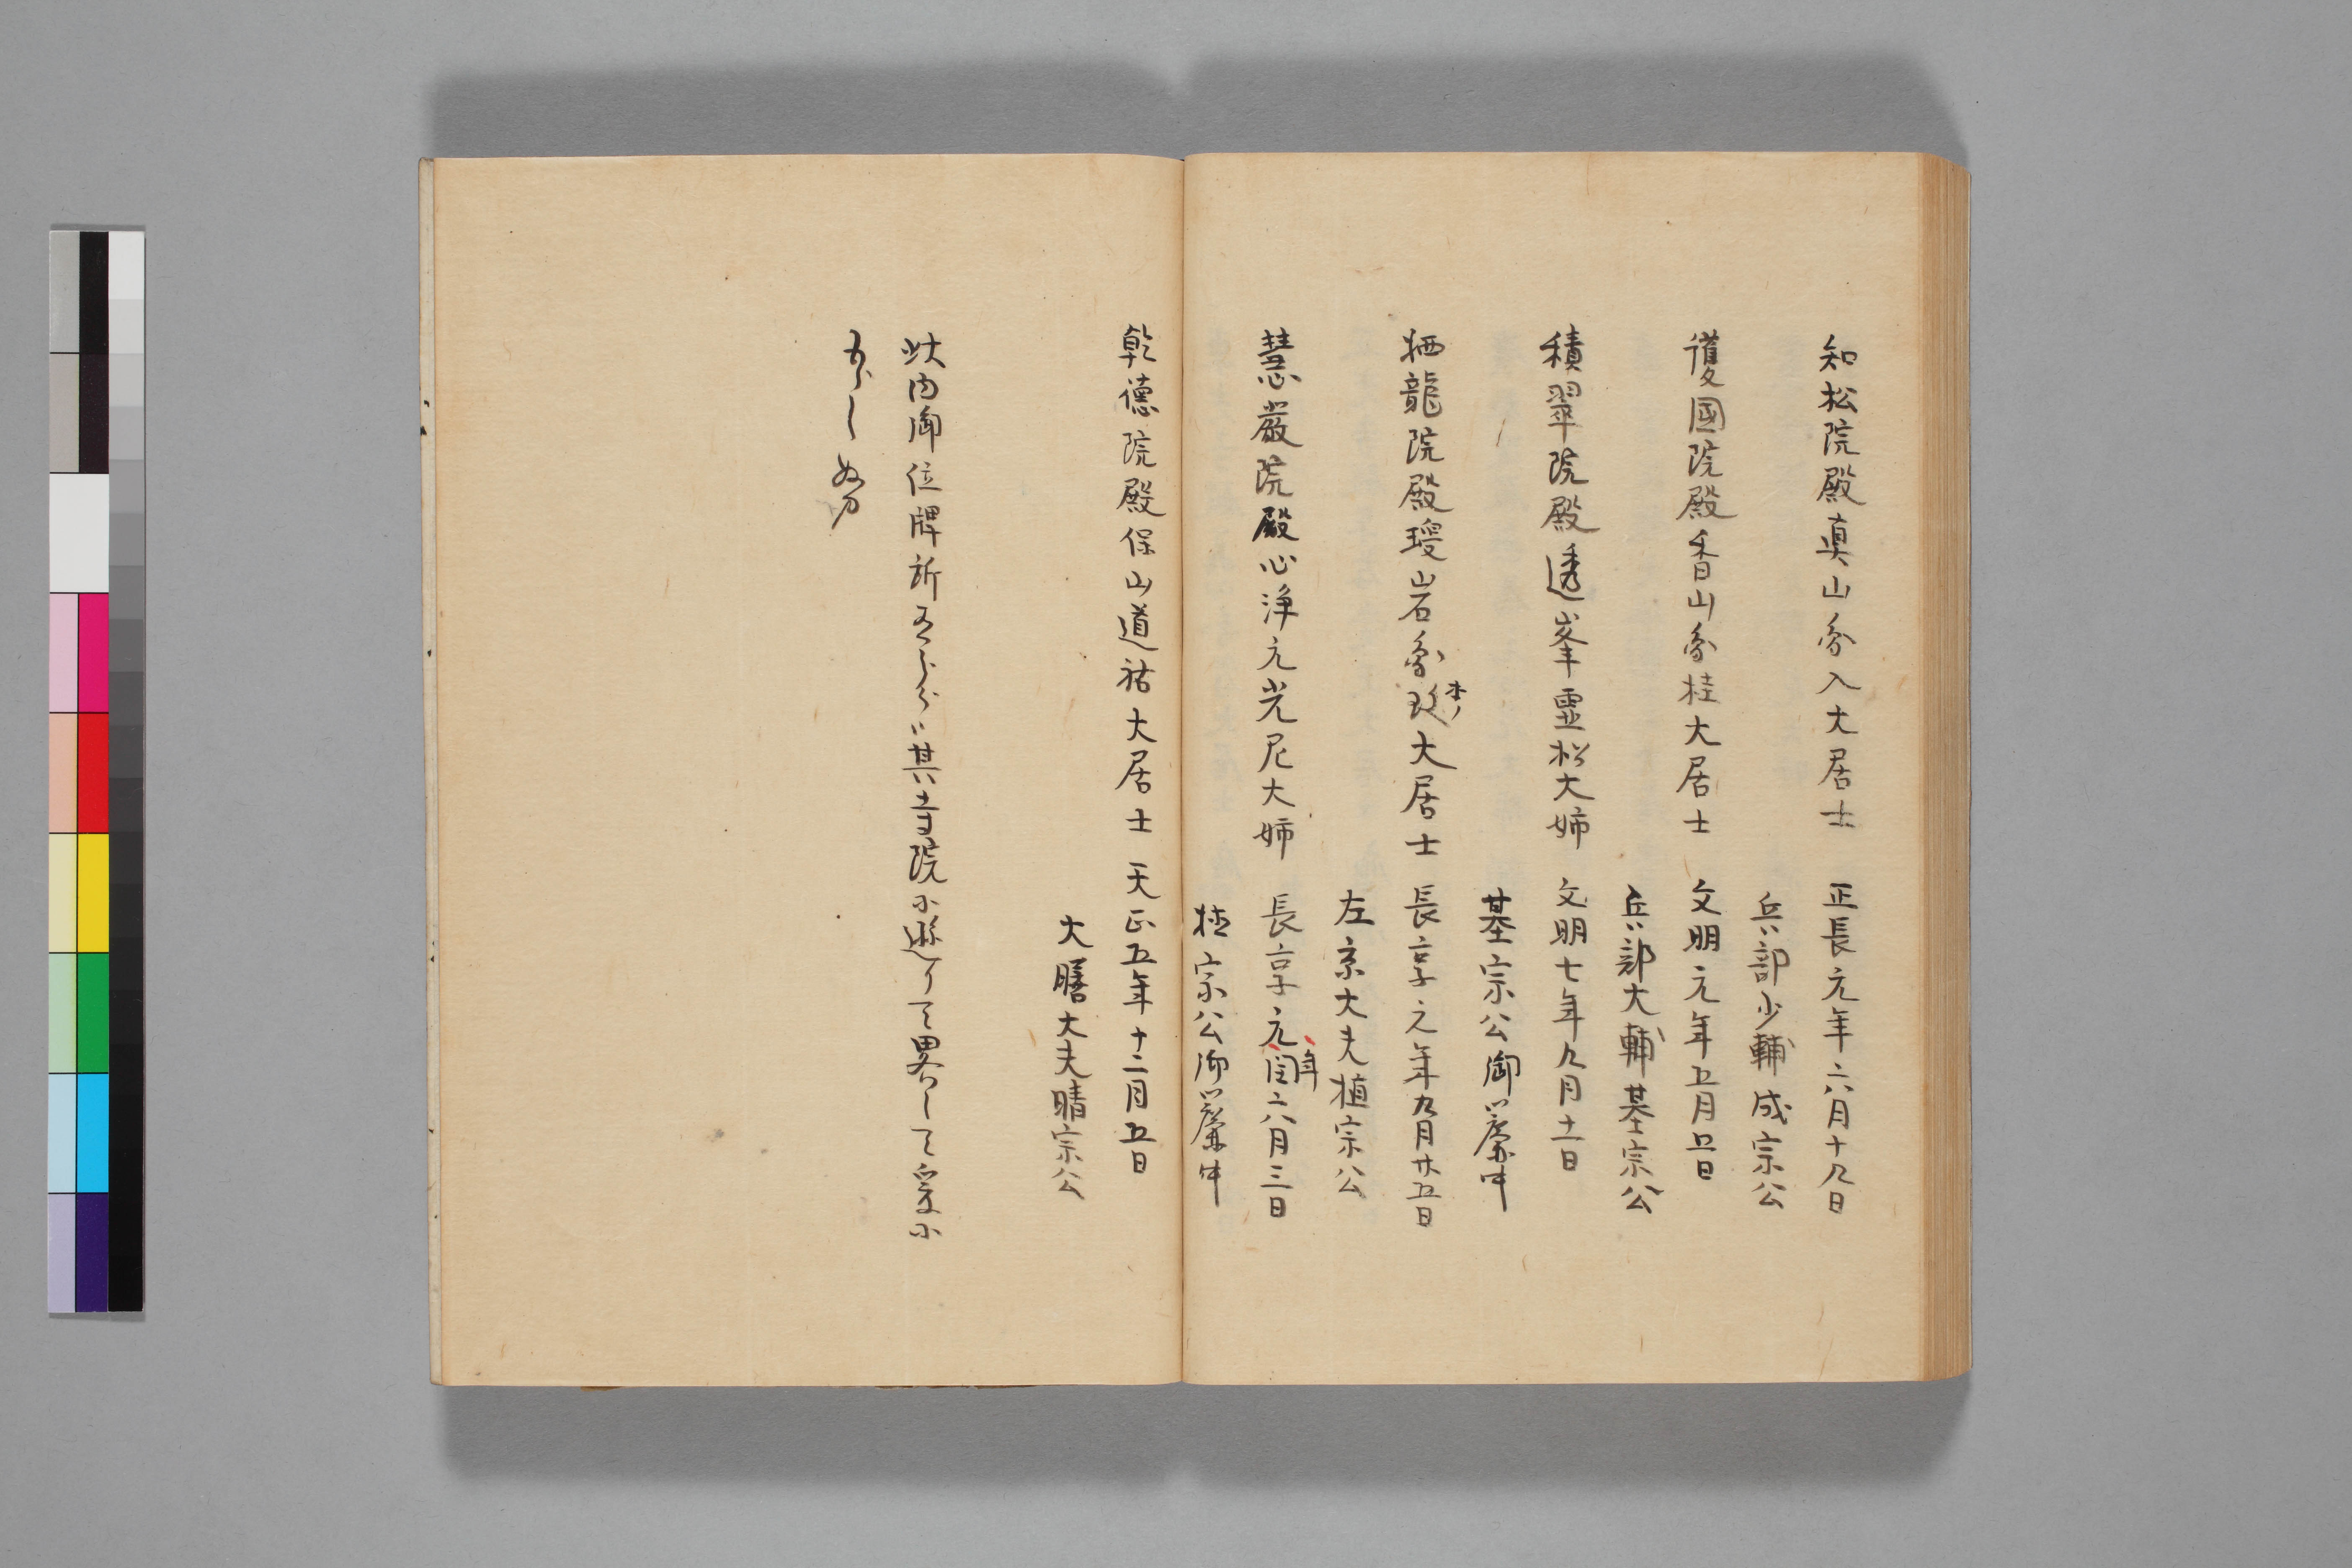 知松院殿真山象入大居士 正長元年六月十九日
兵部少輔成宗公
護國院殿香山象桂大居士 文明元年五月五日
兵部大輔基宗公
積翠院殿透峯霊松大姉 文明七年九月十一日
基宗公御簾中
栖龍院殿璦岩象玖大居士 長享元年九月廿五日
本ノ
左京大夫植宗公
慧嚴院殿心浄元光尼大姉 長享元閏六月三日
年
植宗公御簾中
乾德院殿保山道祐大居士 天正五年十二月五日
大膳大夫晴宗公
此内御位牌所
其寺院
畧して爰に